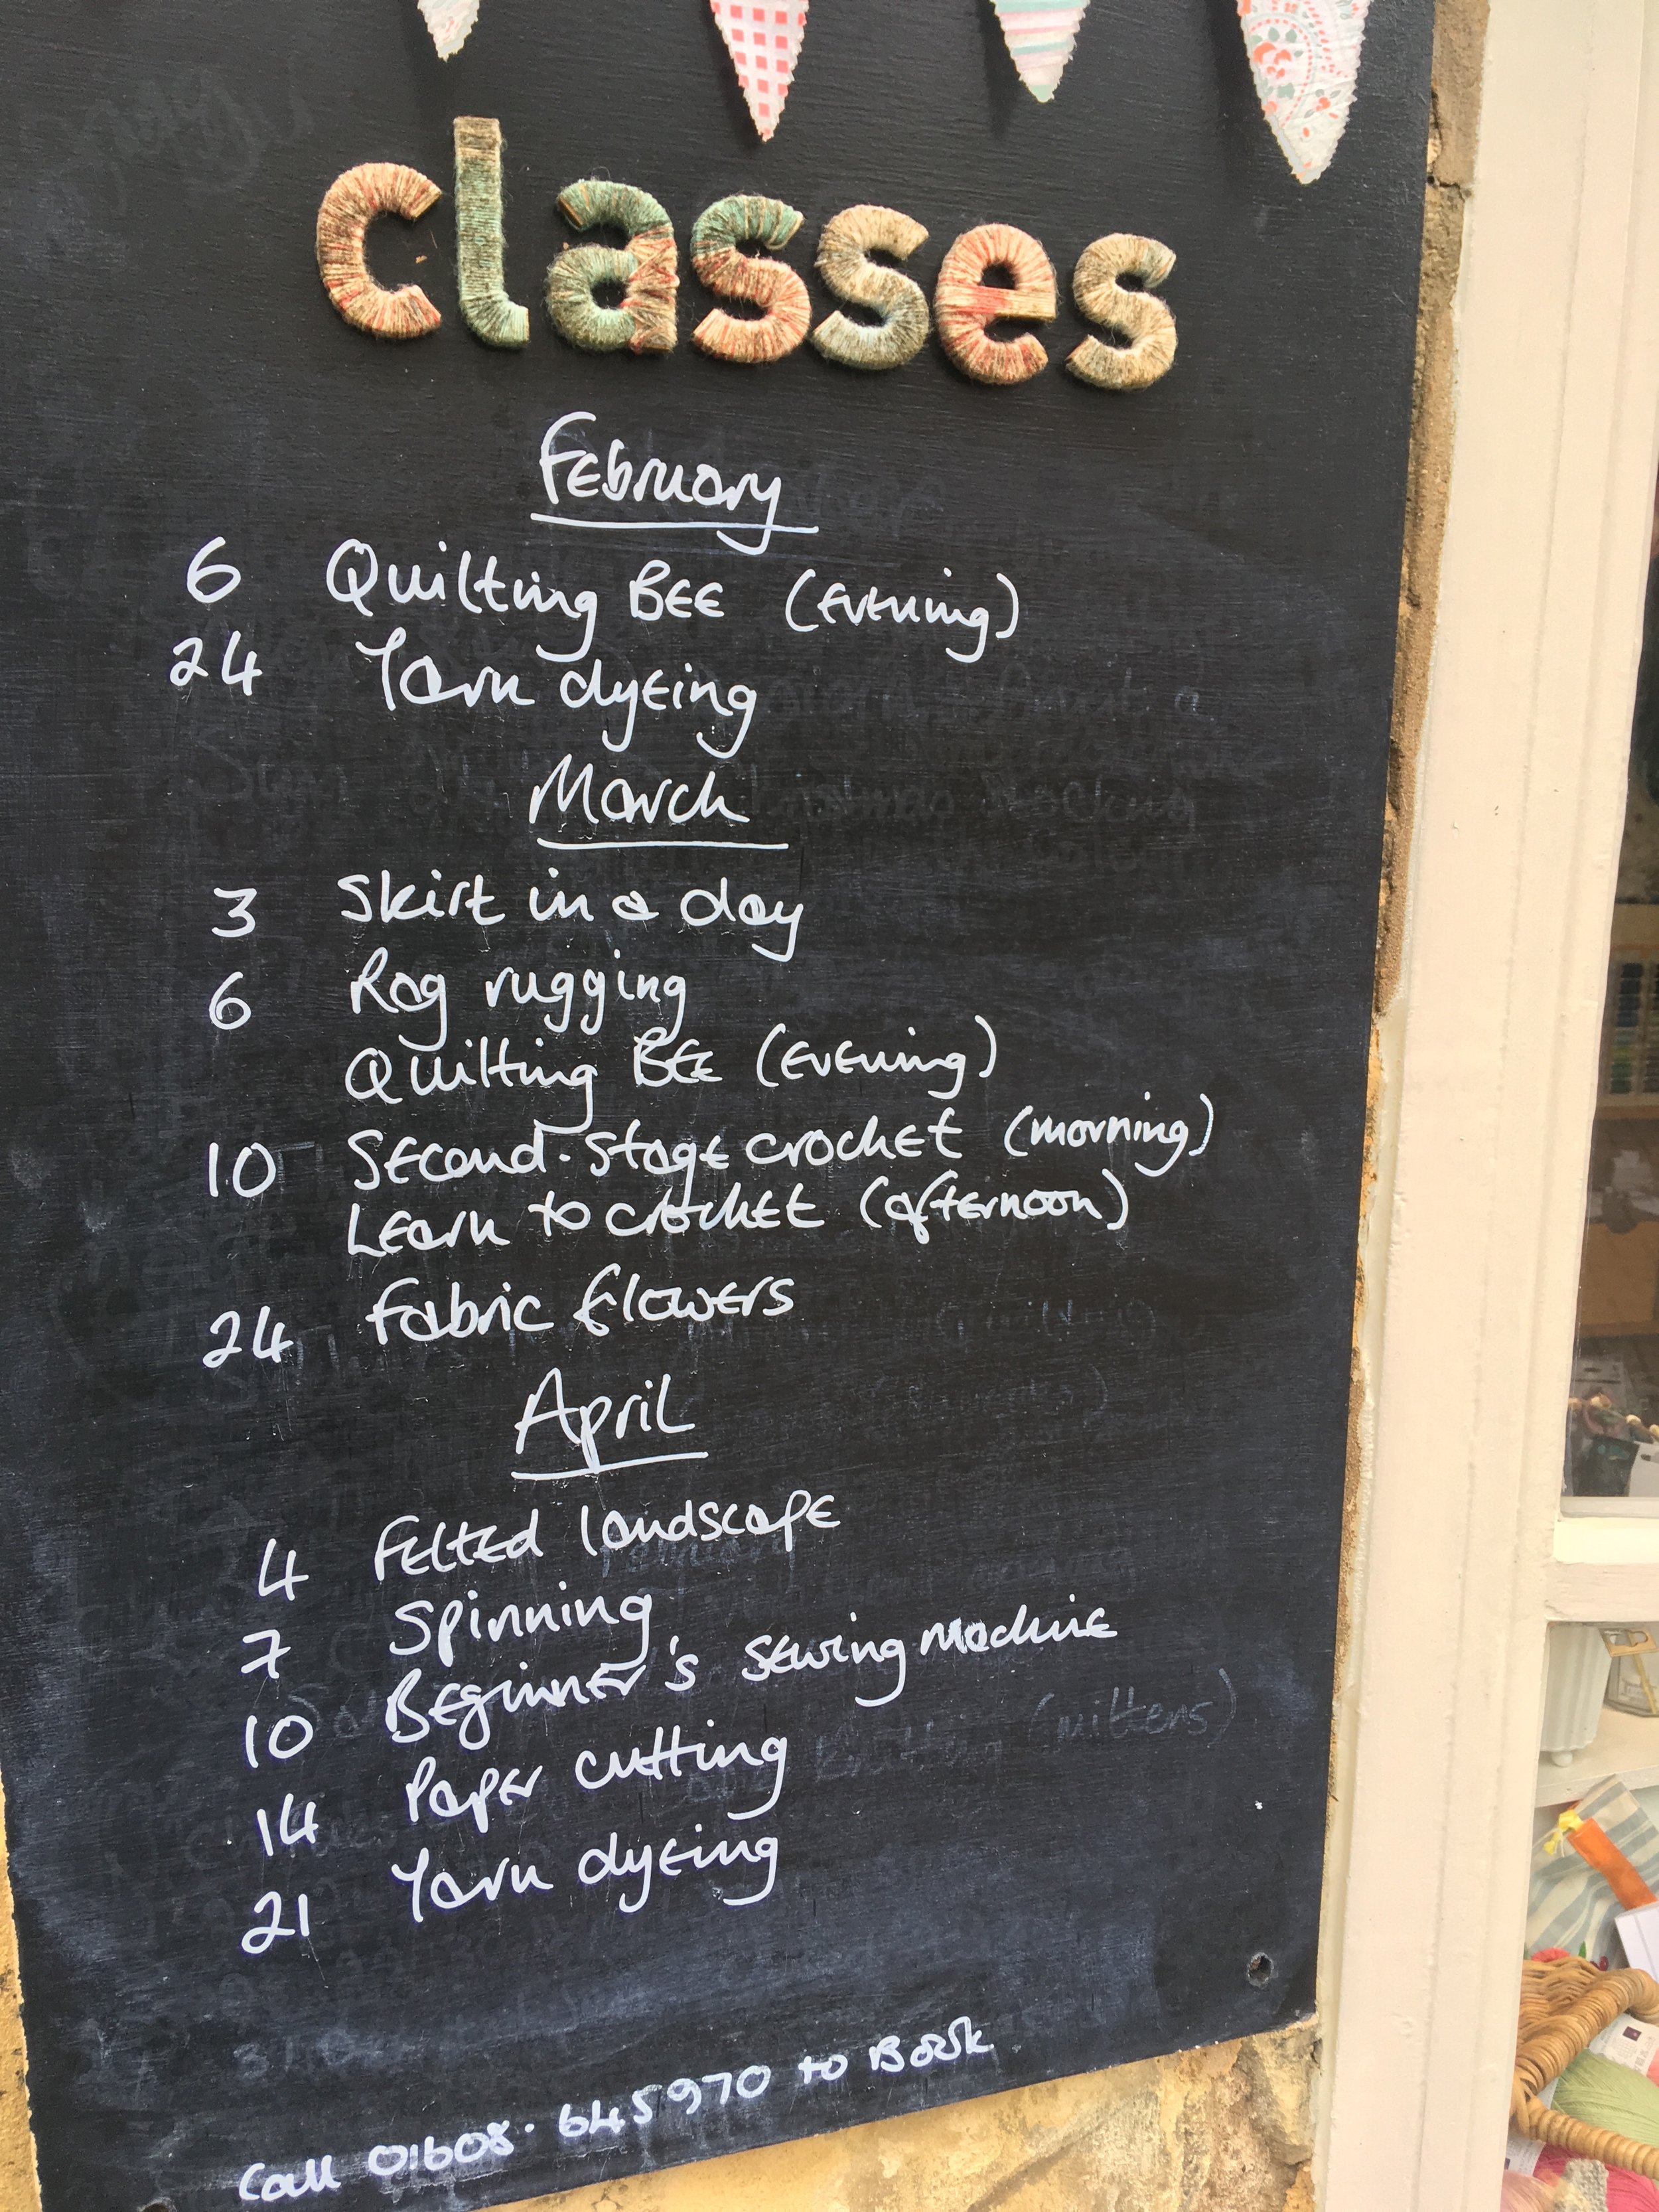 classes
February
6 Quilting BEE (Evening)
24 Yarn dyeing
March
3 Skirt in a day
6 Rag rugging
Quilting BEE (Evening)
10 Second-stage crochet (morning)
Learn to crochet (afternoon)
24 Fabric flowers
April
4 Felted landscape
7 Spinning
10 Beginner's sewing machine
14 Paper cutting
21 Yarn dyeing
Call 01608·645970 to Book